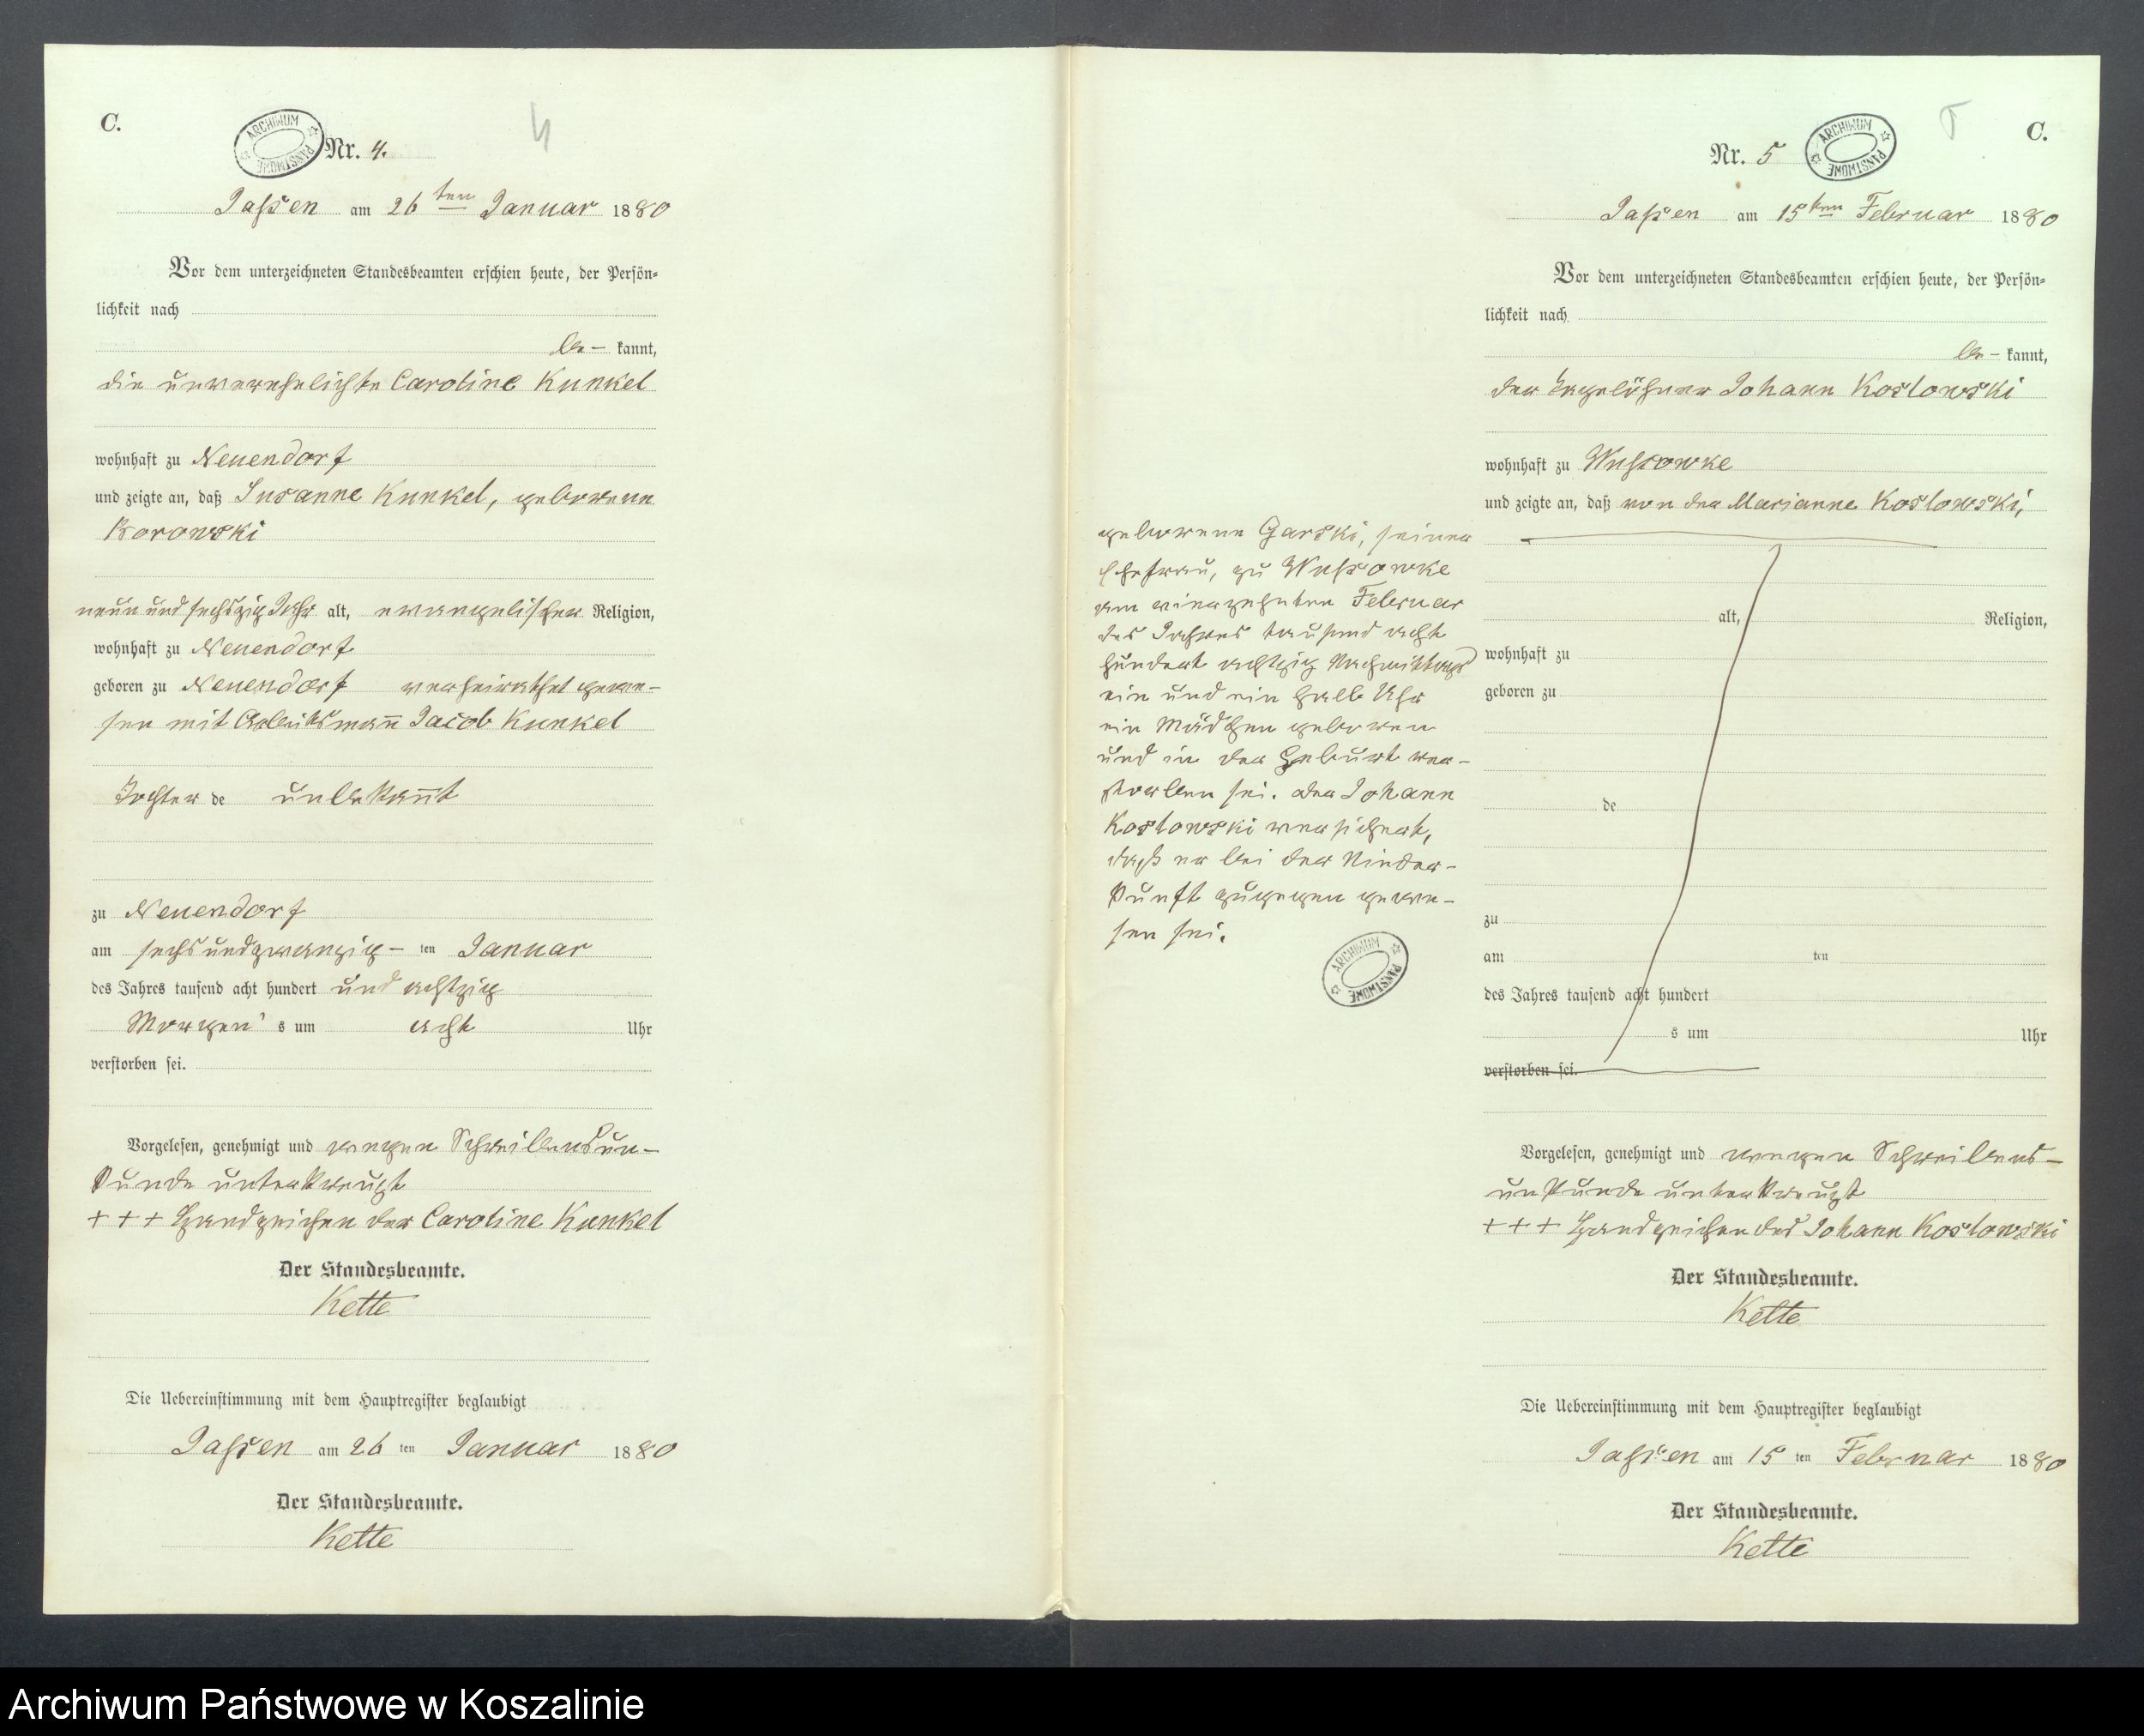 C.
ARCHIWUM PAŃSTWOWE
Nr. 4.
4
Jassen am 26ten Januar 1880
Vor dem unterzeichneten Standesbeamten erschien heute, der Persön-
lichkeit nach
be- kannt,
die unverehelichte Caroline Kunkel
wohnhaft zu Neuendorf
und zeigte an, daß Susanne Kunkel, geborene
Borowski
neun und sechszig Jahr alt, evangelischer Religion,
wohnhaft zu Neuendorf
geboren zu Neuendorf verheirathet gewe-
sen mit Arbeitsmann Jacob Kunkel
Tochter de unbekannt
zu Neuendorf
am sechsundzwanzig- ten Januar
des Jahres tausend acht hundert und achtzig
Morgen's um acht Uhr
verstorben sei.
Vorgelesen, genehmigt und wegen Schreibensun-
kunde unterkreuzt
+ + + Handzeichen der Caroline Kunkel
Der Standesbeamte.
Kette
Die Uebereinstimmung mit dem Hauptregister beglaubigt
Jassen am 26 ten Januar 1880
Der Standesbeamte.
Kette
C.
5
Nr. 5
ARCHIWUM PAŃSTWOWE
Jassen am 15ten Februar 1880
Vor dem unterzeichneten Standesbeamten erschien heute, der Persön-
lichkeit nach
be- kannt,
der Tagelöhner Johann Koslowski
wohnhaft zu Wussowke
und zeigte an, daß von der Marianne Koslowski,
geborene Garski, seiner
Ehefrau, zu Wussowke
am vierzehnten Februar
des Jahres tausend acht
hundert achtzig Nachmittags
ein und ein halb Uhr
ein Mädchen geboren
und in der Geburt ver-
storben sei. Der Johann
Koslowski versichert,
daß er bei der Nieder-
kunft zugegen gewe-
sen sei.
ARCHIWUM PAŃSTWOWE
alt, Religion,
wohnhaft zu
geboren zu
de
zu
am ten
des Jahres tausend acht hundert
s um Uhr
verstorben sei.
Vorgelesen, genehmigt und wegen Schreibens-
unkunde unterkreuzt
+ + + Handzeichen des Johann Koslowski
Der Standesbeamte.
Kette
Die Uebereinstimmung mit dem Hauptregister beglaubigt
Jassen am 15 ten Februar 1880
Der Standesbeamte.
Kette
Archiwum Państwowe w Koszalinie